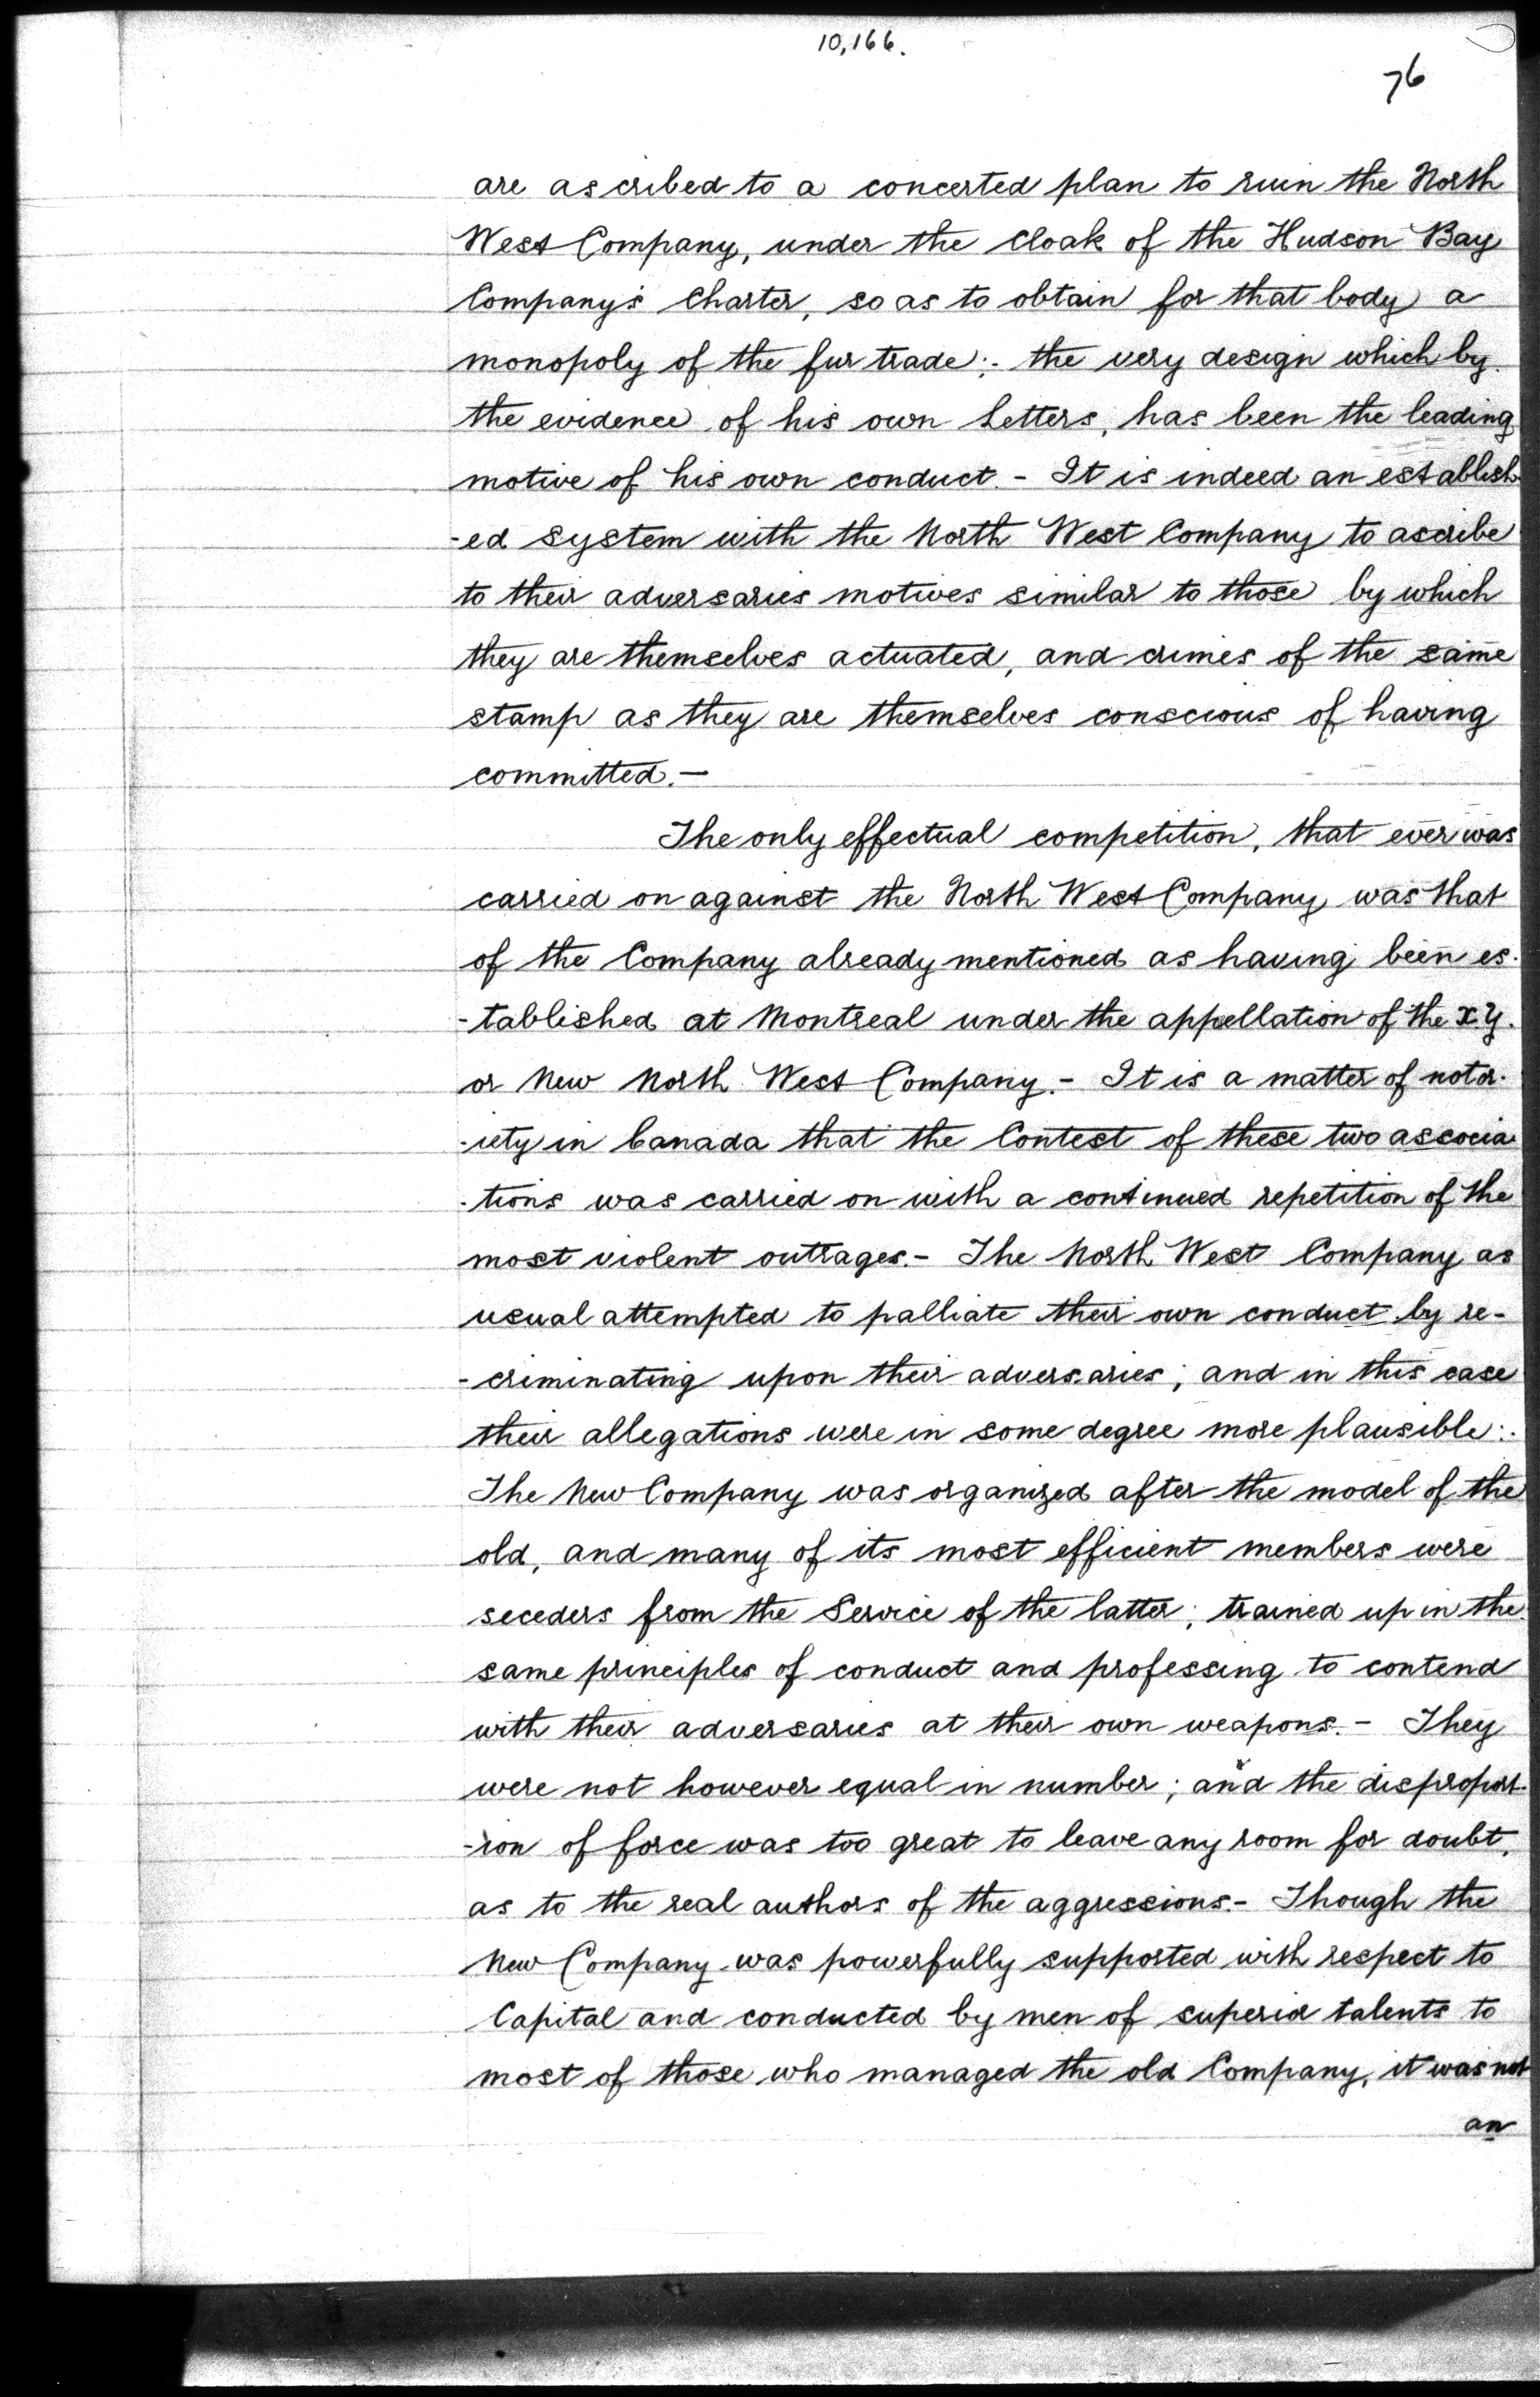 10,166.
76
are ascribed to a concerted plan to ruin the North
West Company, under the cloak of the Hudson Bay
Company's Charter, so as to obtain for that body a
monopoly of the fur trade:- the very design which by
the evidence of his own Letters, has been the leading
motive of his own conduct.- It is indeed an establish-
-ed system with the North West Company to ascribe
to their adversaries motives similar to those by which
they are themselves actuated, and crimes of the same
stamp as they are themselves conscious of having
committed.-
The only effectual competition, that ever was
carried on against the North West Company was that
of the Company already mentioned as having been es-
-tablished at Montreal under the appellation of the X.Y.
or New North West Company.- It is a matter of notor-
-iety in Canada that the Contest of these two associa-
-tions was carried on with a continued repetition of the
most violent outrages.- The North West Company as
usual attempted to palliate their own conduct by re-
-criminating upon their adversaries; and in this case
their allegations were in some degree more plausible:-
The New Company was organized after the model of the
old, and many of its most efficient members were
seceders from the Service of the latter; trained up in the
same principles of conduct and professing to contend
with their adversaries at their own weapons.- They
were not however equal in number; and the disproport-
-ion of force was too great to leave any room for doubt,
as to the real authors of the aggressions.- Though the
New Company was powerfully supported with respect to
Capital and conducted by men of superior talents to
most of those who managed the old Company, it was not
an